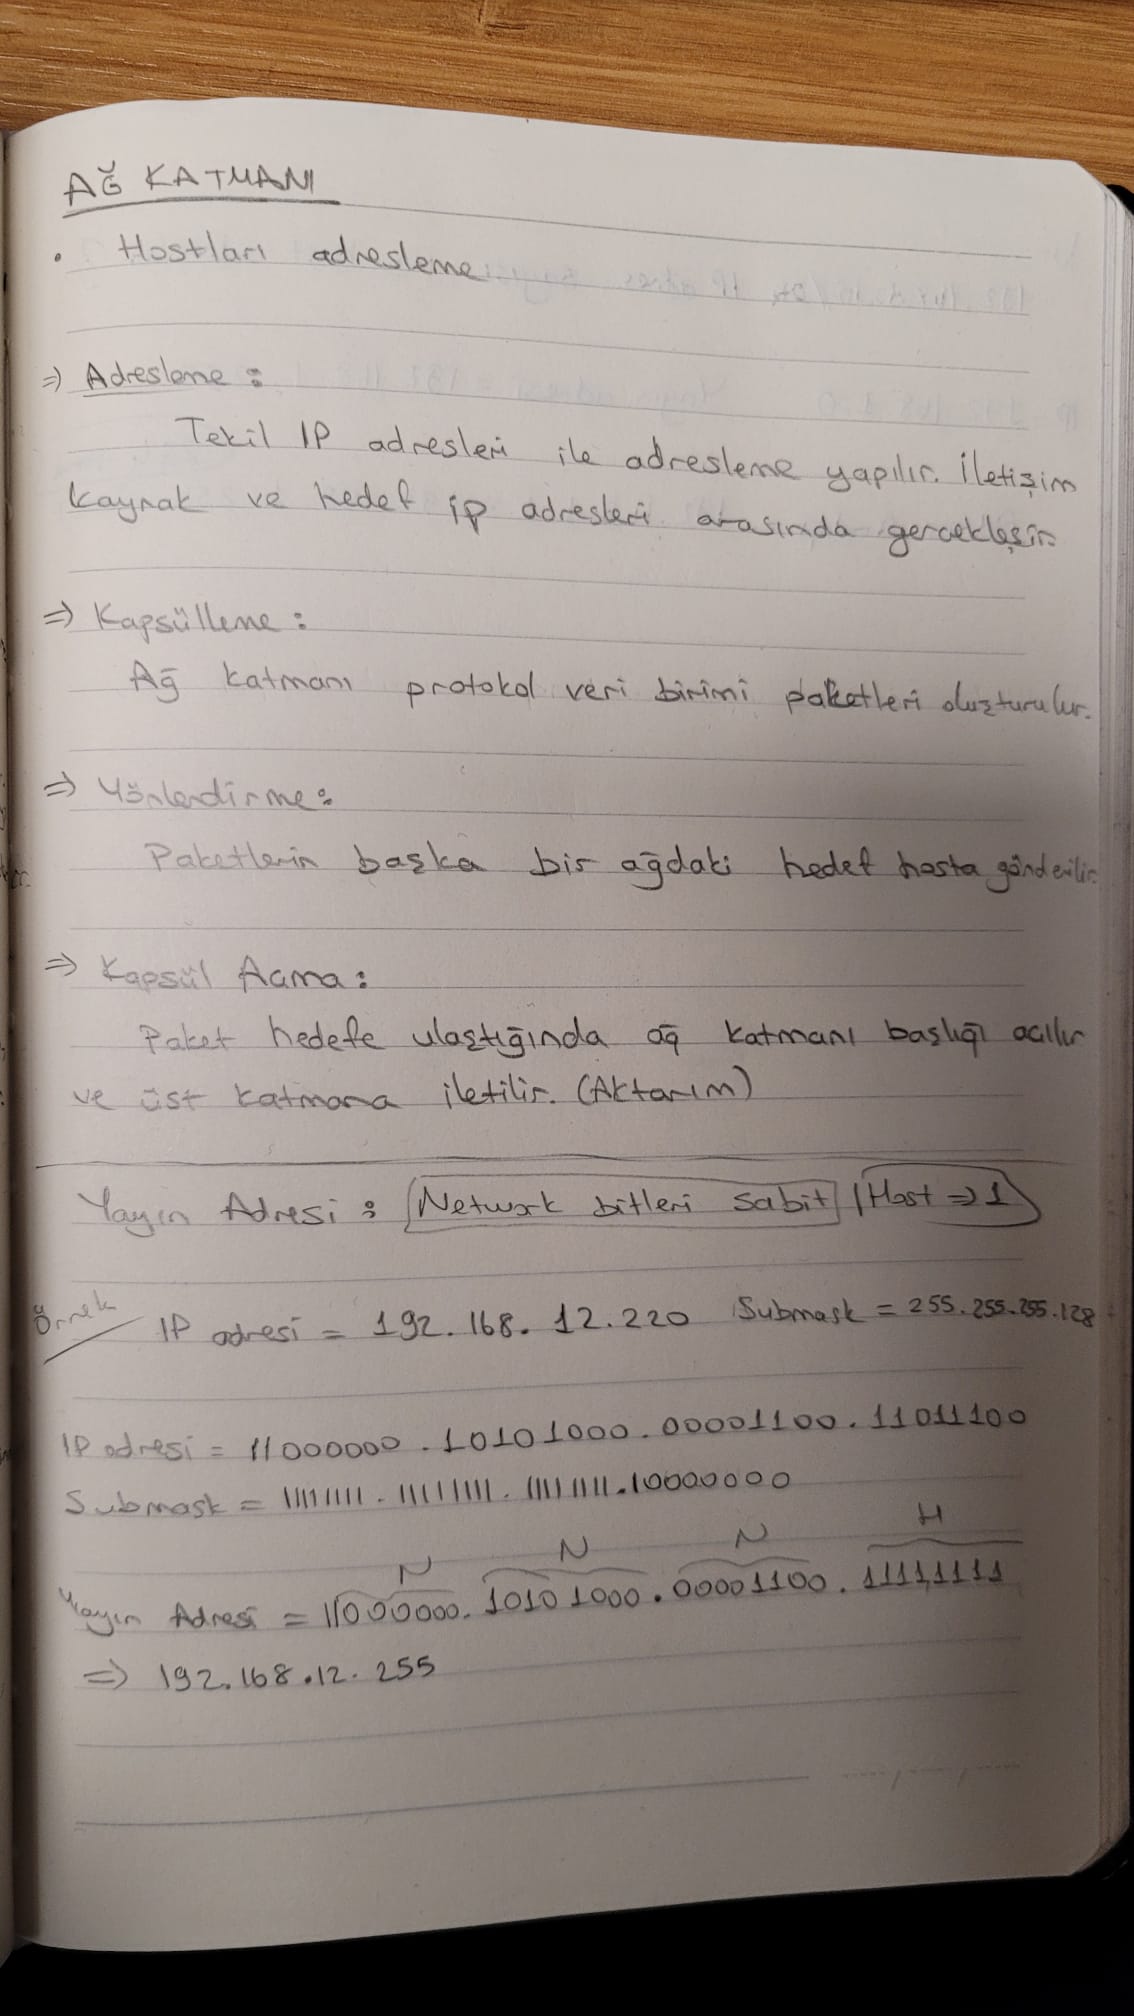 AĞ KATMANI
• Hostları adresleme
⇒ Adresleme :
Tekil IP adresleri ile adresleme yapılır. İletişim
kaynak ve hedef ip adresleri arasında gerçekleşir.
⇒ Kapsülleme :
Ağ katmanı protokol veri birimi paketleri oluşturulur.
⇒ Yönlendirme :
Paketlerin başka bir ağdaki hedef hosta gönderilir.
⇒ Kapsül Açma :
Paket hedefe ulaştığında ağ katmanı başlığı açılır
ve üst katmana iletilir. (Aktarım)
Yayın Adresi : Network bitleri sabit / Host ⇒ 1
Örnek IP adresi = 192.168.12.220 Submask = 255.255.255.128
IP adresi = 11000000.10101000.00001100.11011100
Submask = 11111111.11111111.11111111.10000000
N N N H
Yayın Adresi = 11000000.10101000.00001100.11111111
⇒ 192.168.12.255